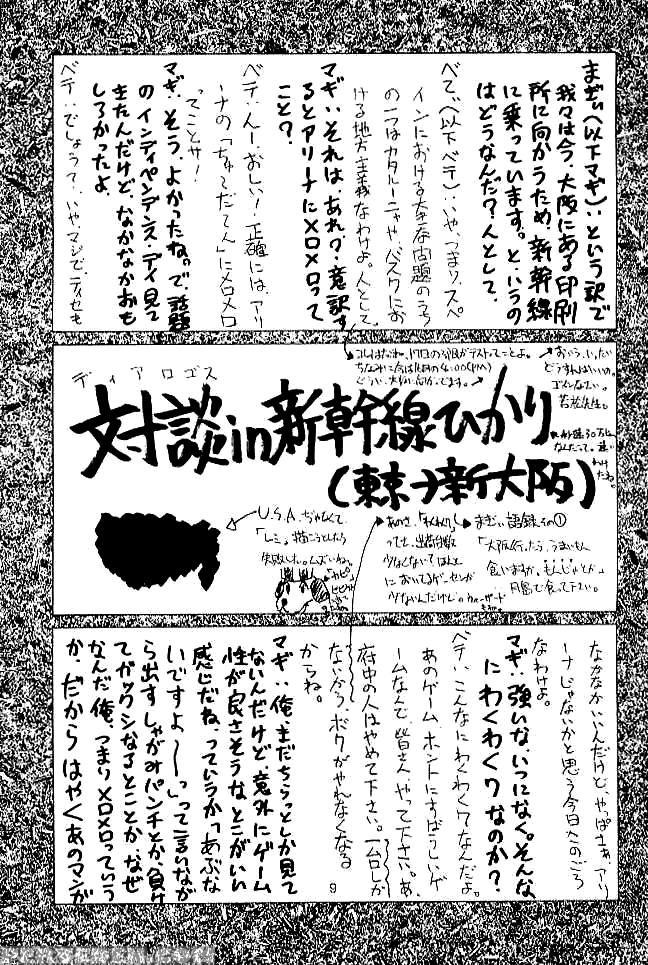 まぎぃ(以下マギ)：という訳で
我々は今、大阪にある印刷
所に向かうため、新幹線
に乗っています。と、いうの
はどうなんだ?人として。
べてぃ(以下ベテ)：いや、つまり、スペ
インにおける大きな問題のうち
の一つはカタルーニャや、バスクにお
ける地方主義なわけよ。人として
マギ：それは、あれか?意訳す
るとアリーナにメロメロって
こと?
ベテ：んー、おしい!正確には、アリ
ーナの「ちゅてだてん」にメロメロ
ってことサ!
マギ：そう、よかったね。で、話題
のインディペンデンス・デイ見て
きたんだけど、なかなかおも
しろかったよ。
ベテ：でしょうて、いやマジで、ティセも
ディアロゴス
対談in新幹線ひかり
(東京→新大阪)
ちなみに今は
どうい、大阪に向かってます。
おいう、い、たい
どうすんだいいの。
ゴメンなさい。
若松先生。
U.S.A.ぢゃなくて、
「レミ」。描こうとしたら
失敗した。ムズいね。
あのさ、「わくわく7」
ってさ、出荷台数
少なくない?ほんと
においてるゲーセンが
少ないんだけど
まぎぃ語録その①
「大阪行ったら、うまいもん
食いますか。もんじゃとか。」
月島で食って下さい。
なかなかいいんだけど、やっぱさぁ、アリ
ーナじゃないかと思う今日このごろ
なわけよ。
マギ：強いな、いつになく。そんな
にわくわく7なのか?
ベテ：こんなにわくわく7なんだよ。
あのゲーム、ホントにすばらしいゲ
ームなんで、皆さん、やって下さい。あ、
府中の人はやめて下さい。一台しか
ないから、ボクがやれなくなる
からね。
マギ：俺、まだちらっとしか見て
ないんだけど、意外にゲーム
性が良さそうな、とこがいい
感じだね、っていうか「あぶな
いですよ〜〜っ」って言いなが
ら出すしゃがみパンチとか、負け
てガックシなるとことか、なぜ
なんだ俺、つまりメロメロっていう
か、だからはやくあのマンガ
9